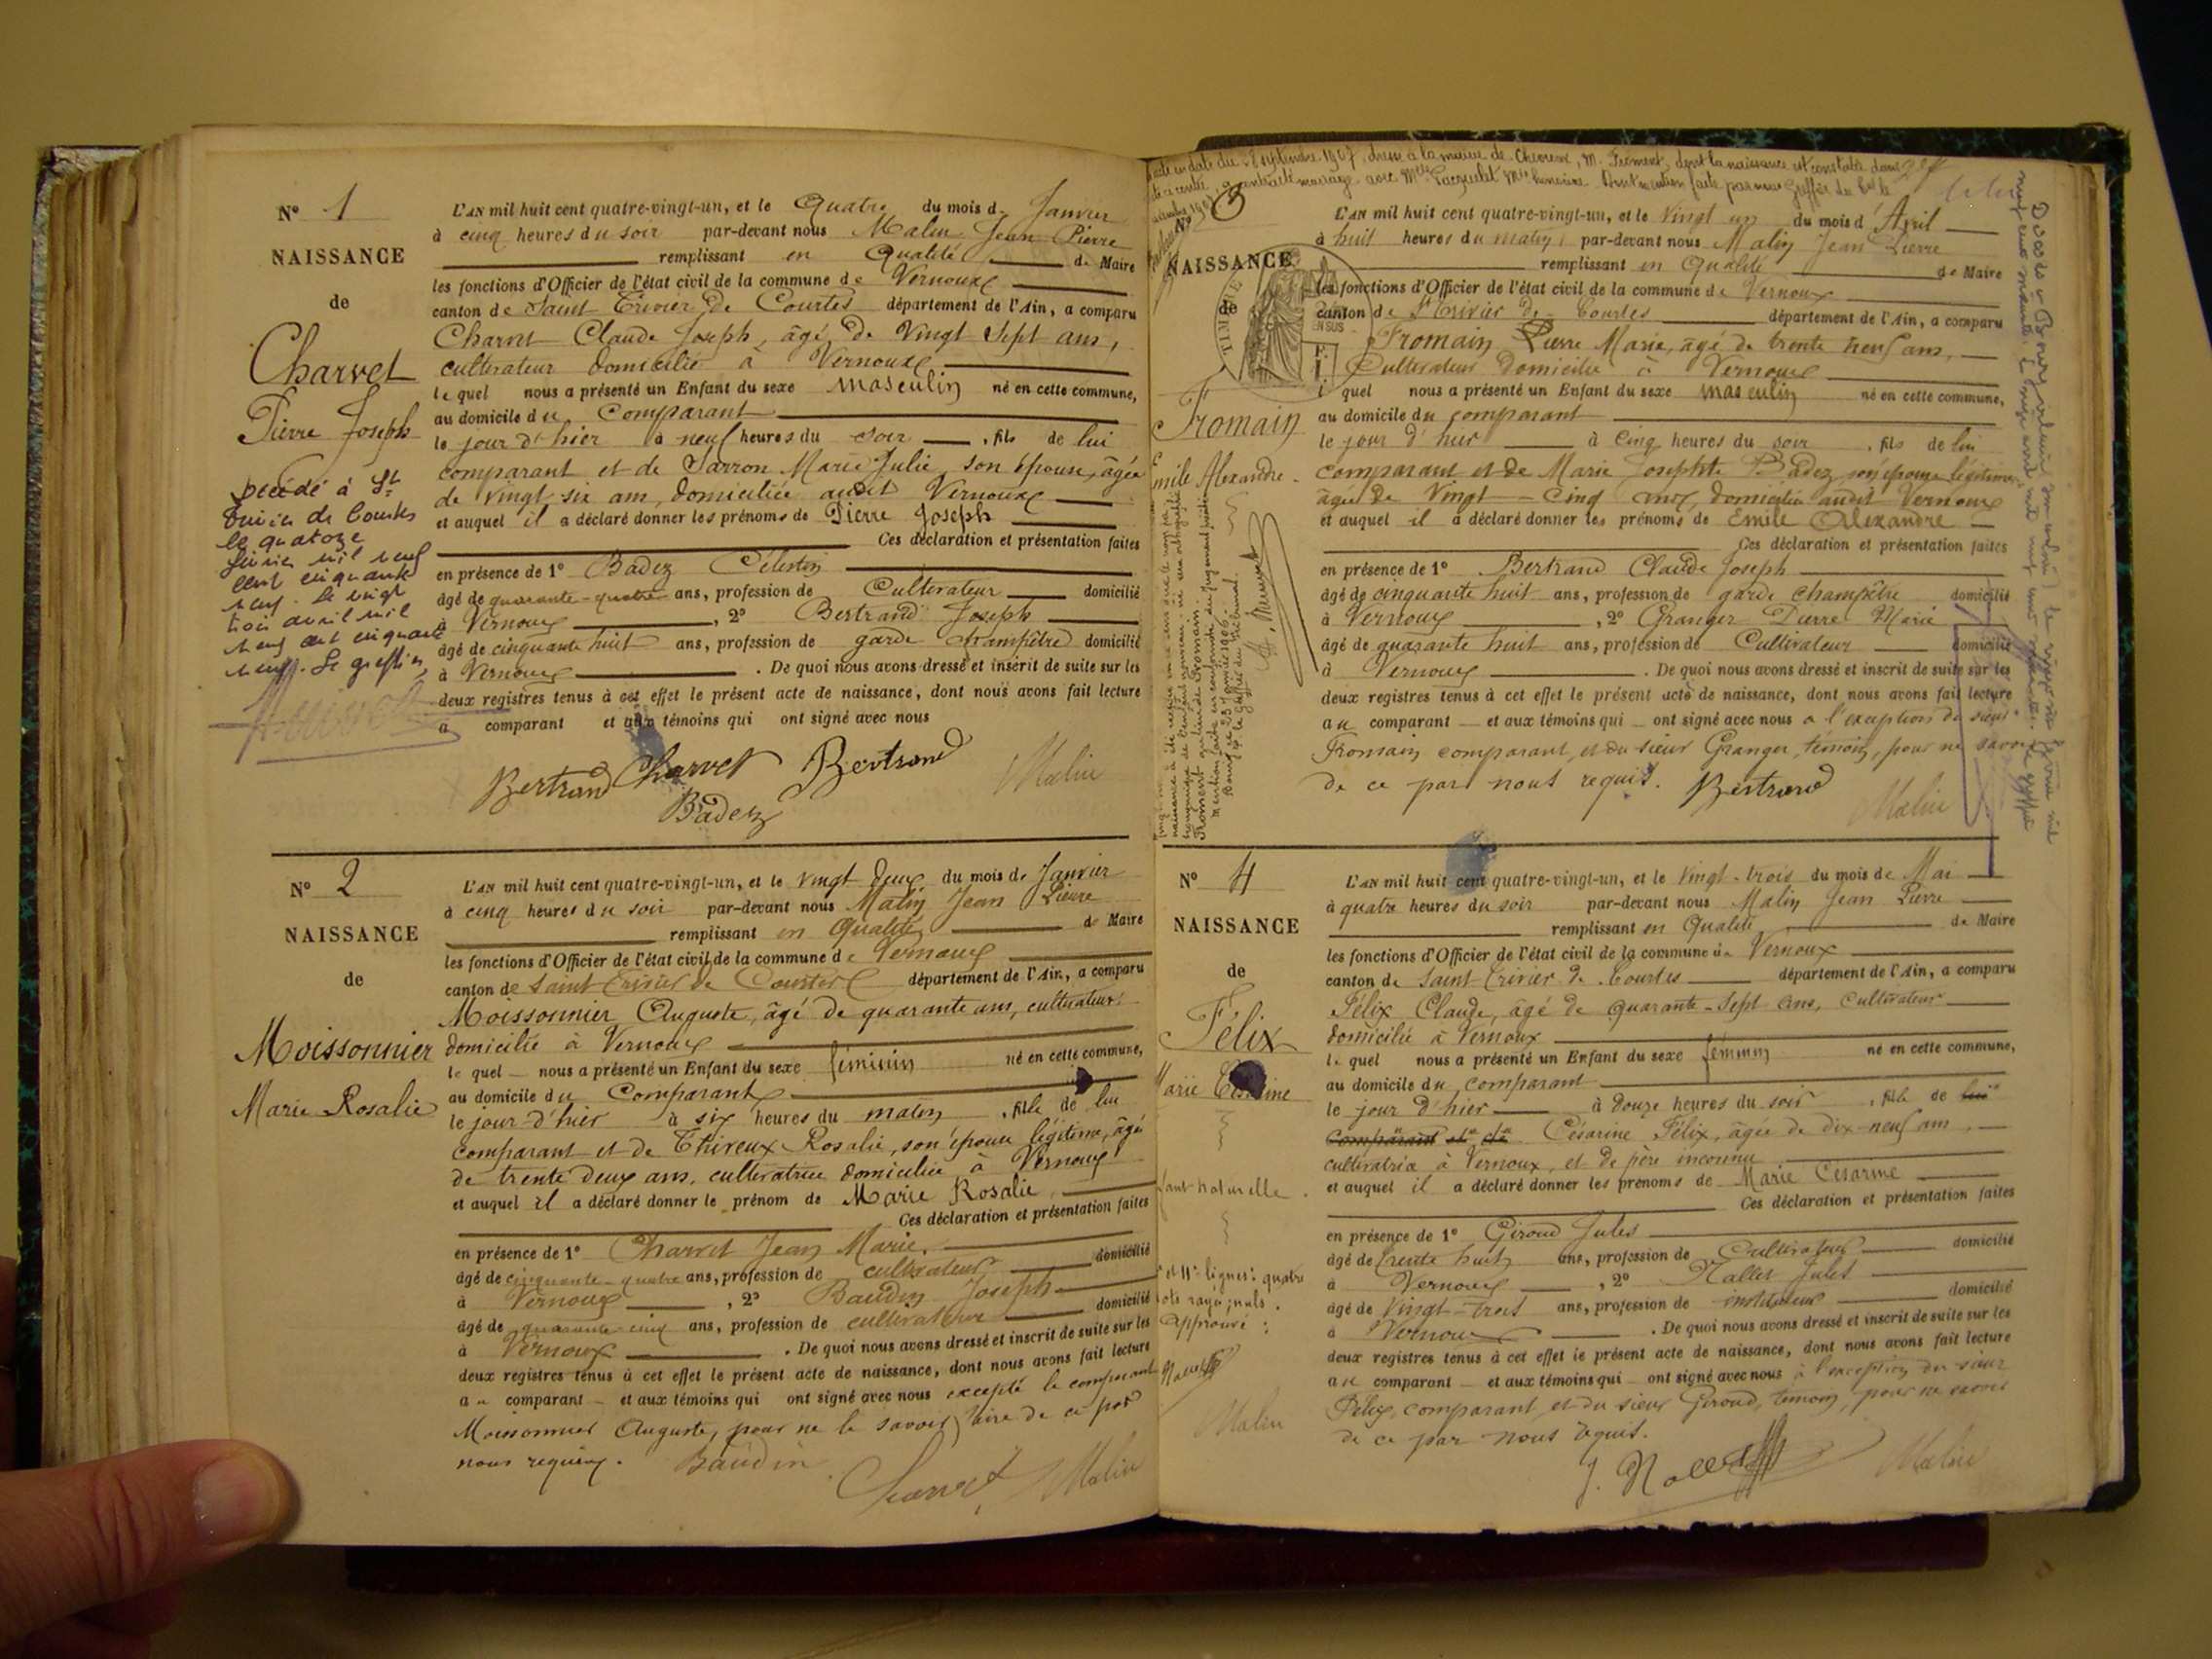 N° 1
NAISSANCE
de
Charvet
Pierre Joseph
Décédé à St
Trivier de Courtes
le quatorze
février mil neuf
cent cinquante
neuf. Le vingt
trois avril mil
neuf cent cinquante
neuf. Le greffier,
L'AN mil huit cent quatre-vingt-un, et le Quatre du mois de Janvier
à cinq heures du soir par-devant nous Malin Jean Pierre
remplissant en Qualité de Maire
les fonctions d'Officier de l'état civil de la commune de Vernoux
canton de Saint Trivier de Courtes département de l'Ain, a comparu
Charvet Claude Joseph, âgé de Vingt Sept ans,
cultivateur domicilié à Vernoux
le quel nous a présenté un Enfant du sexe masculin né en cette commune,
au domicile du Comparant
le jour d'hier à neuf heures du soir, fils de lui
comparant et de Sarron Marie Julie, son épouse, âgée
de vingt six ans, domiciliée audit Vernoux
et auquel il a déclaré donner les prénoms de Pierre Joseph
Ces déclaration et présentation faites
en présence de 1° Badez Célestin
âgé de quarante-quatre ans, profession de Cultivateur domicilié
à Vernoux, 2° Bertrand Joseph
âgé de cinquante huit ans, profession de garde champêtre domicilié
à Vernoux. De quoi nous avons dressé et inscrit de suite sur les
deux registres tenus à cet effet le présent acte de naissance, dont nous avons fait lecture
a comparant et aux témoins qui ont signé avec nous
Bertrand Charvet Bertrand Malin
Badez
N° 2
NAISSANCE
de
Moissonnier
Marie Rosalie
L'AN mil huit cent quatre-vingt-un, et le vingt deux du mois de Janvier
à cinq heures du soir par-devant nous Malin Jean Pierre
remplissant en Qualité de Maire
les fonctions d'Officier de l'état civil de la commune de Vernoux
canton de Saint Trivier de Courtes département de l'Ain, a comparu
Moissonnier Auguste, âgé de quarante ans, cultivateur
domicilié à Vernoux
le quel nous a présenté un Enfant du sexe féminin né en cette commune,
au domicile du Comparant
le jour d'hier à six heures du matin, fille de lui
comparant et de Thireux Rosalie, son épouse légitime, âgée
de trente deux ans, cultivatrice domiciliée à Vernoux
et auquel il a déclaré donner le prénom de Marie Rosalie,
Ces déclaration et présentation faites
en présence de 1° Charvet Jean Marie,
âgé de cinquante-quatre ans, profession de cultivateur domicilié
à Vernoux, 2° Baudin Joseph
âgé de quarante cinq ans, profession de cultivateur domicilié
à Vernoux. De quoi nous avons dressé et inscrit de suite sur les
deux registres tenus à cet effet le présent acte de naissance, dont nous avons fait lecture
au comparant et aux témoins qui ont signé avec nous excepté le comparant
Moissonnier Auguste, pour ne le savoir faire de ce par
nous requis. Baudin Charvet Malin
N° 3
NAISSANCE
de
Fromain
Emile Alexandre
L'AN mil huit cent quatre-vingt-un, et le Vingt un du mois d'Avril
à huit heures du matin, par-devant nous Malin Jean Pierre
remplissant en Qualité de Maire
les fonctions d'Officier de l'état civil de la commune de Vernoux
canton de St Trivier de Courtes département de l'Ain, a comparu
Fromain Pierre Marie, âgé de trente neuf ans,
Cultivateur domicilié à Vernoux
le quel nous a présenté un Enfant du sexe masculin né en cette commune,
au domicile du comparant
le jour d'hier à Cinq heures du soir, fils de lui
comparant et de Marie Josephte Badez, son épouse légitime,
âgée de Vingt-Cinq ans, domiciliée audit Vernoux
et auquel il a déclaré donner les prénoms de Emile Alexandre
Ces déclaration et présentation faites
en présence de 1° Bertrand Claude Joseph
âgé de cinquante huit ans, profession de garde champêtre domicilié
à Vernoux, 2° Granger Pierre Marie
âgé de quarante huit ans, profession de Cultivateur domicilié
à Vernoux. De quoi nous avons dressé et inscrit de suite sur les
deux registres tenus à cet effet le présent acte de naissance, dont nous avons fait lecture
au comparant et aux témoins qui ont signé avec nous à l'exception du sieur
Fromain comparant, et du sieur Granger, témoin, pour ne savoir
de ce par nous requis. Bertrand Malin
N° 4
NAISSANCE
de
Félix
Marie Césarine
enfant naturelle.
et 11e lignes: quatre
mots rayés nuls.
Approuvé:
Malin
L'AN mil huit cent quatre-vingt-un, et le Vingt-trois du mois de Mai
à quatre heures du soir par-devant nous Malin Jean Pierre
remplissant en Qualité de Maire
les fonctions d'Officier de l'état civil de la commune de Vernoux
canton de Saint Trivier de Courtes département de l'Ain, a comparu
Félix Claude, âgé de quarante-Sept ans, Cultivateur
domicilié à Vernoux
le quel nous a présenté un Enfant du sexe féminin né en cette commune,
au domicile du comparant
le jour d'hier à douze heures du soir, fille de lui
comparant et de Césarine Félix, âgée de dix-neuf ans,
cultivatrice à Vernoux, et de père inconnu
et auquel il a déclaré donner les prénoms de Marie Césarine
Ces déclaration et présentation faites
en présence de 1° Giroud Jules
âgé de trente huit ans, profession de Cultivateur domicilié
à Vernoux, 2° Nallet Jules
âgé de Vingt-trois ans, profession de instituteur domicilié
à Vernoux. De quoi nous avons dressé et inscrit de suite sur les
deux registres tenus à cet effet le présent acte de naissance, dont nous avons fait lecture
au comparant et aux témoins qui ont signé avec nous à l'exception du sieur
Félix, comparant, et du sieur Giroud, témoin, pour ne savoir
de ce par nous requis.
J. Nallet Malin